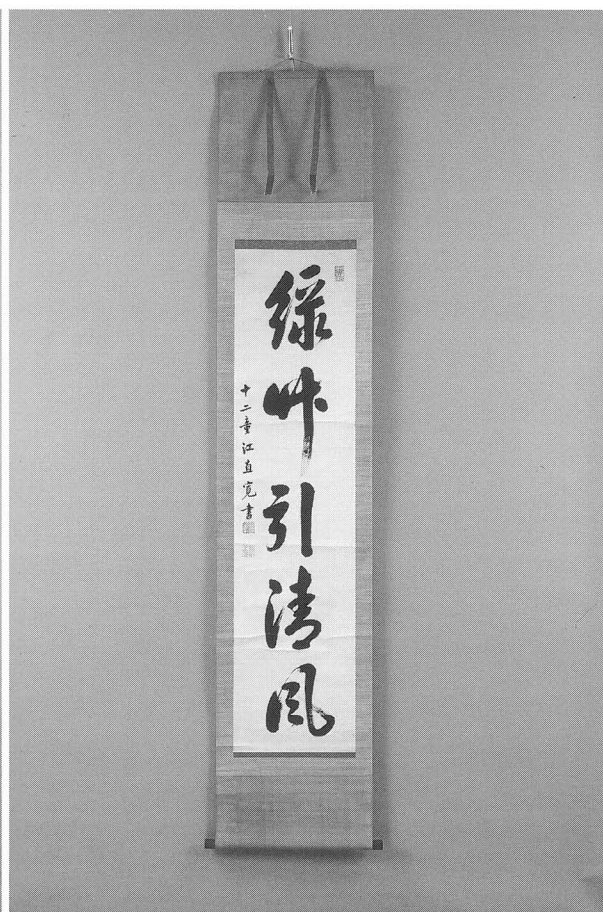 緑竹引清風
十二童江直寛書